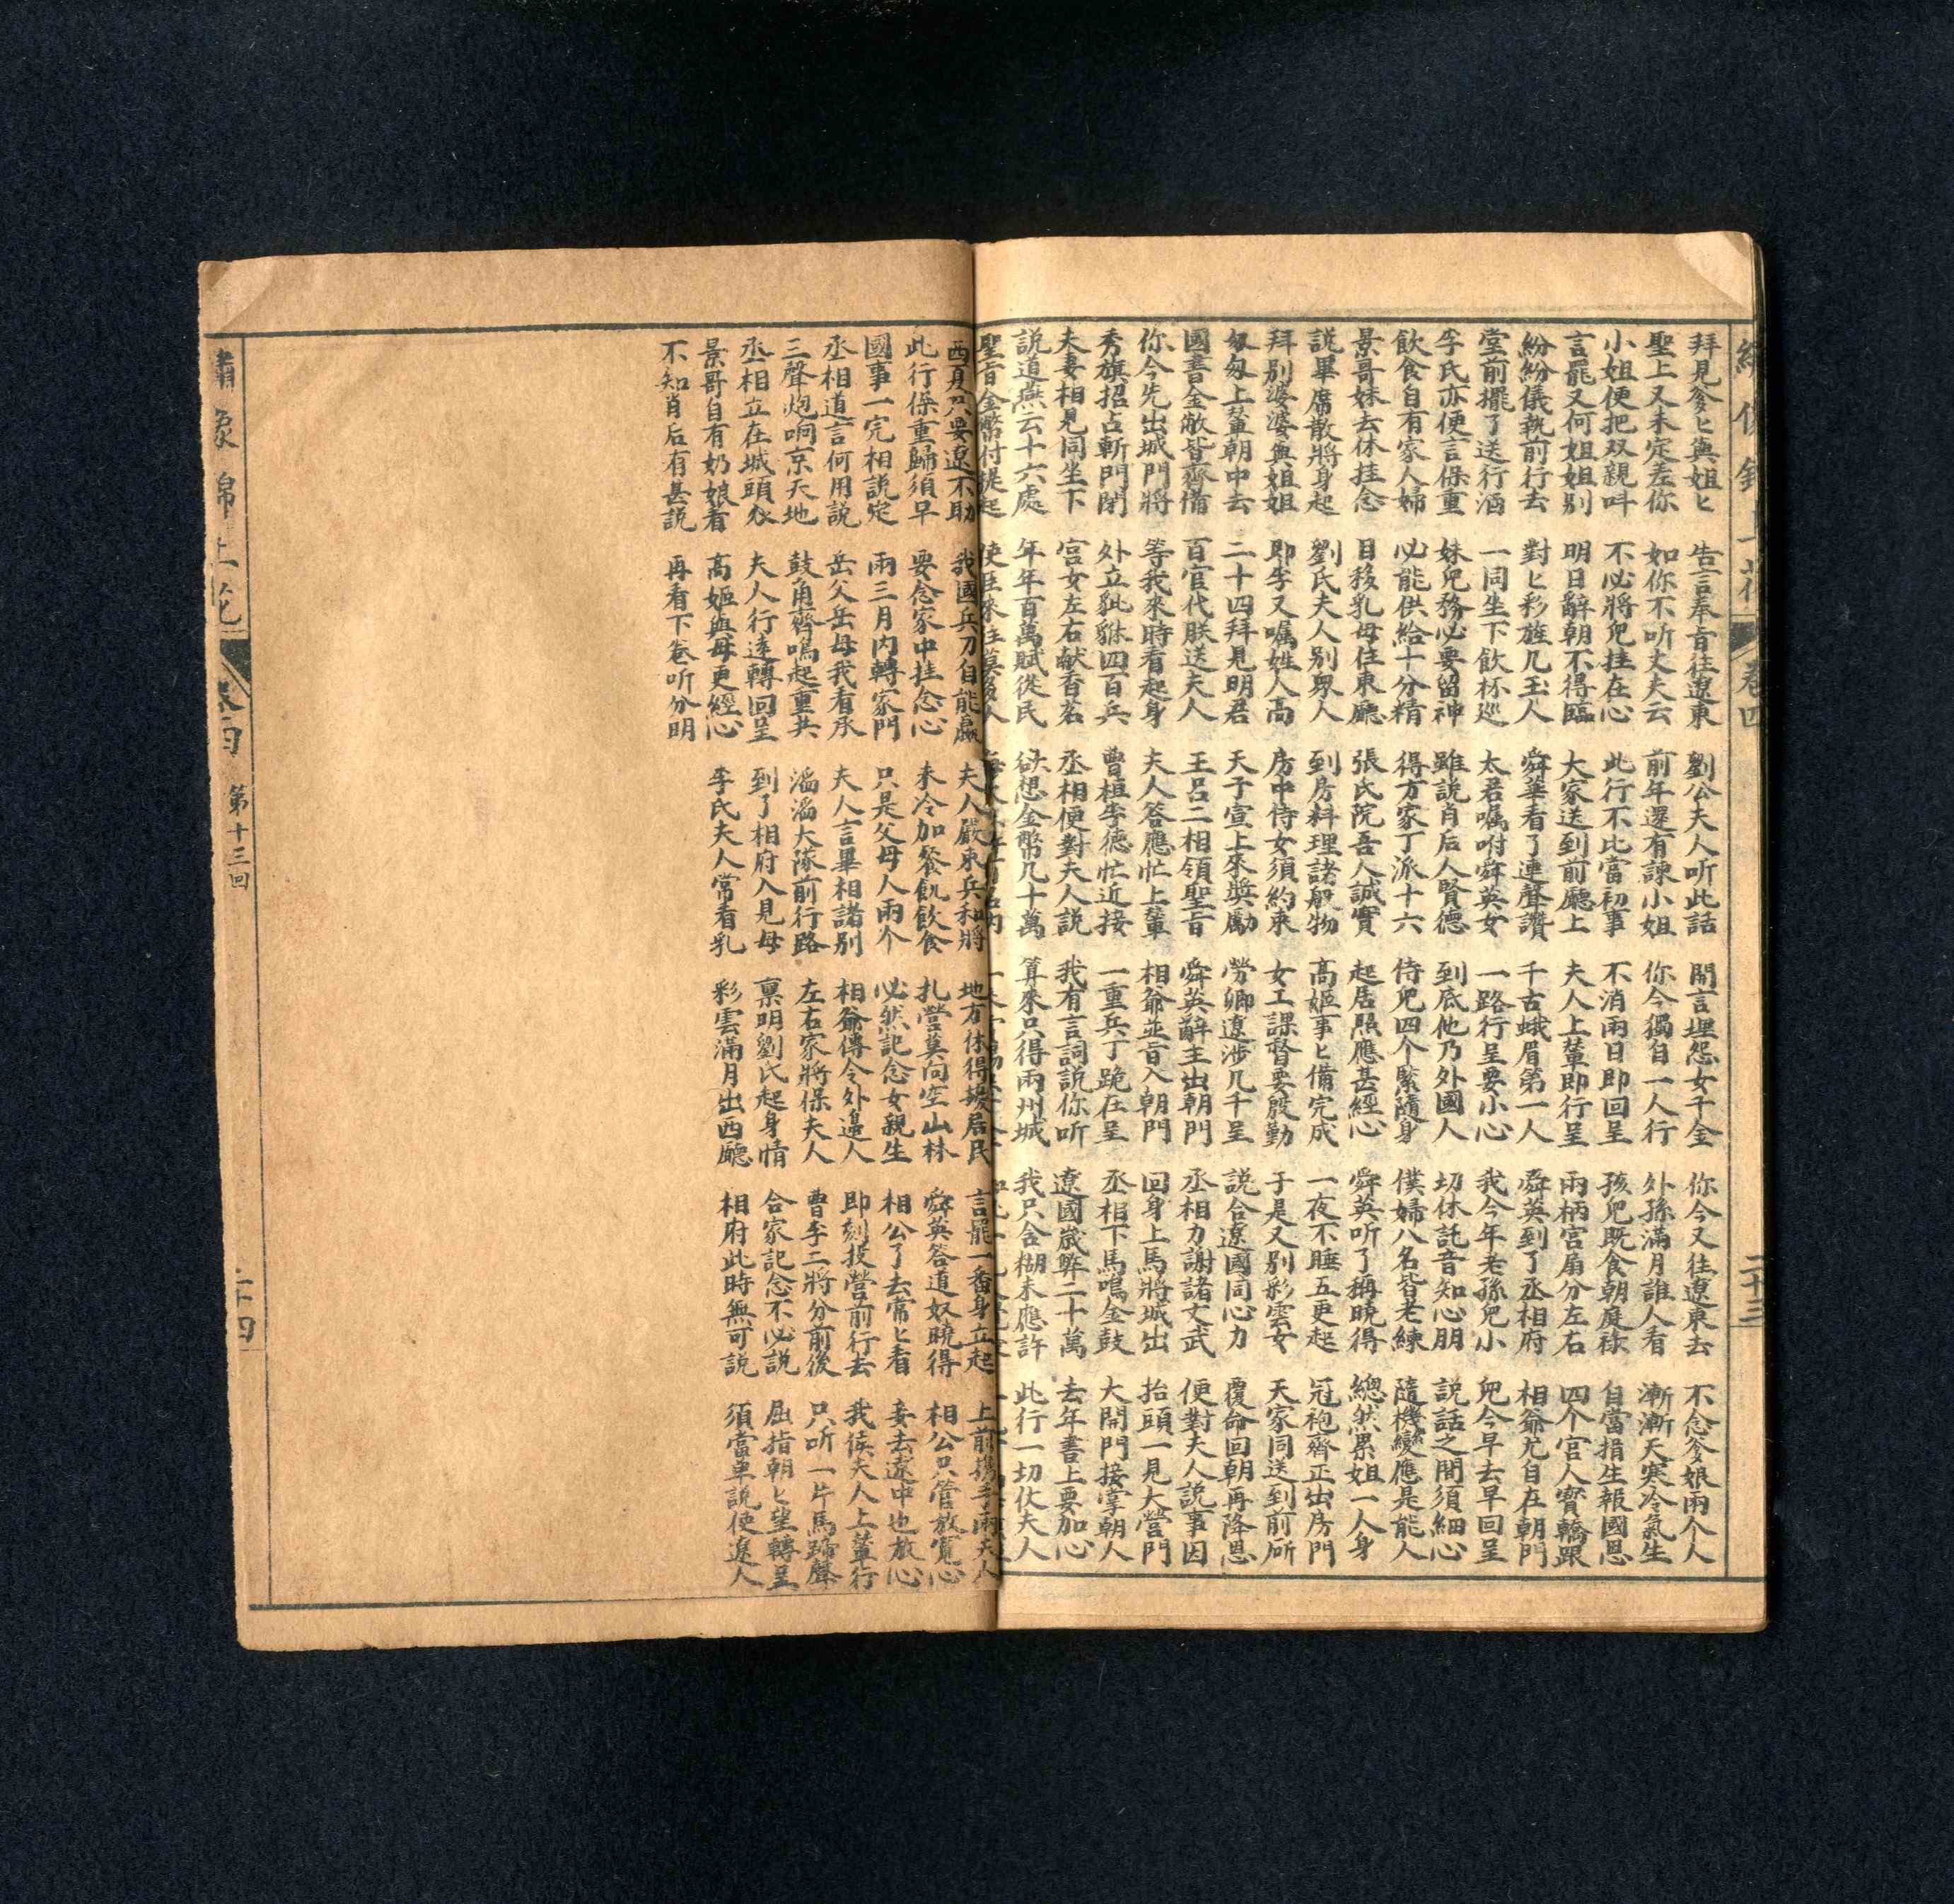 卷四
二十三
拜見爹匕與姐匕 告言奉旨往遼東 劉公夫人听此話 開言埋怨女千金 你今又往遼東去 不念爹娘兩个人
聖上又未定差你 如你不听丈夫云 前年還有諫小姐 你今獨自一人行 外孫滿月誰人看 漸漸天寒冷氣生
小姐便把双親呌 不必將兒挂在心 此行不比當初事 不消兩日即回呈 孩兒既食朝庭祿 自當捐生報國恩
言罷又何姐姐別 明日辭朝不得臨 大家送到前廳上 夫人上輦即行呈 兩柄宮扇分左右 四个宮人寶轎跟
紛紛儀執前行去 對匕彩旌几玉人 舜華看了連聲讚 千古蛾眉第一人 舜英到了丞相府 相爺尤自在朝門
堂前擺了送行酒 一同坐下飲杯巡 太君囑咐舜英女 一路行呈要小心 我今年老孫兒小 兒今早去早回呈
李氏亦便言保重 妹兒務必要留神 雖説肖后人賢德 到底他乃外國人 切休託音知心朋 説話之間須細心
飲食自有家人婦 必能供給十分精 得方家丁派十六 侍兒四个緊隨身 僕婦八名皆老練 隨機變應是能人
景哥妹去休挂念 目移乳母住東廳 張氏院吾人誠實 起居照應甚經心 舜英听了稱曉得 總然累姐一人身
説畢席散將身起 劉氏夫人別衆人 到房料理諸般物 高嫗事匕備完成 一夜不睡五更起 冠袍齊正出房門
拜別婆婆與姐姐 即李又囑姓人高 房中侍女須約束 女工課督要殷勤 于是又別彩雲女 天家同送到前厛
匆匆上輦朝中去 二十四拜見明君 天子宣上來奬勵 勞卿遼涉几千呈 説合遼國同心力 覆命回朝再降恩
國書金敝皆齊備 百官代朕送夫人 王呂二相領聖旨 舜英辭主出朝門 丞相力謝諸文武 便對夫人説事因
你今先出城門將 等我來時看起身 夫人答應忙上輦 相爺並旨入朝門 回身上馬將城出 抬頭一見大營門
秀旗招占斬門閉 外立貔貅四百兵 曹桓李德忙近接 一重兵丁跪在呈 丞相下馬鳴金鼓 大開門接掌朝人
夫妻相見同坐下 宮女左右献香茗 丞相便對夫人説 我有言詞説你听 遼國歲弊二十萬 去年書上要加心
説道燕云十六處 年年百萬賦從民 欲想金幣几十萬 算來只得兩州城 我只含糊未應許 此行一切仗夫人
聖旨金幣付提起 使臣來往莫多人
西夏只要遼不助 我國兵刀自能贏 夫人嚴束兵和將 地方休得擾居民 言罷一番身立起 上前攜手兩夫人
此行保重歸須早 要念家中挂念心 未冷加餐飢飲食 扎營莫向空山林 舜英答道奴曉得 相公只管放寬心
國事一完相説定 兩三月内轉家門 只是父母人兩个 必然記念女親生 相公了去常匕看 妾去遼中也放心
丞相道言何用説 岳父岳母我看承 夫人言畢相諸別 相爺傳令外邊人 即刻拔營前行去 我侯夫人上輦行
三聲炮响京天地 鼓角齊鳴起重兵 滔滔大隊前行路 左右家將保夫人 曹李二將分前後 只听一片馬蹄聲
丞相立在城頭衆 夫人行遠轉回呈 到了相府入見母 禀明劉氏起身情 合家記念不必説 屈指朝匕望轉呈
景哥自有奶娘看 高嫗與母更經心 李氏夫人常看乳 彩雲滿月出西廳 相府此時無可説 須當單説使遼人
不知肖后有甚説 再看下卷听分明
繡像錦上花 卷四 第十三回 二十四